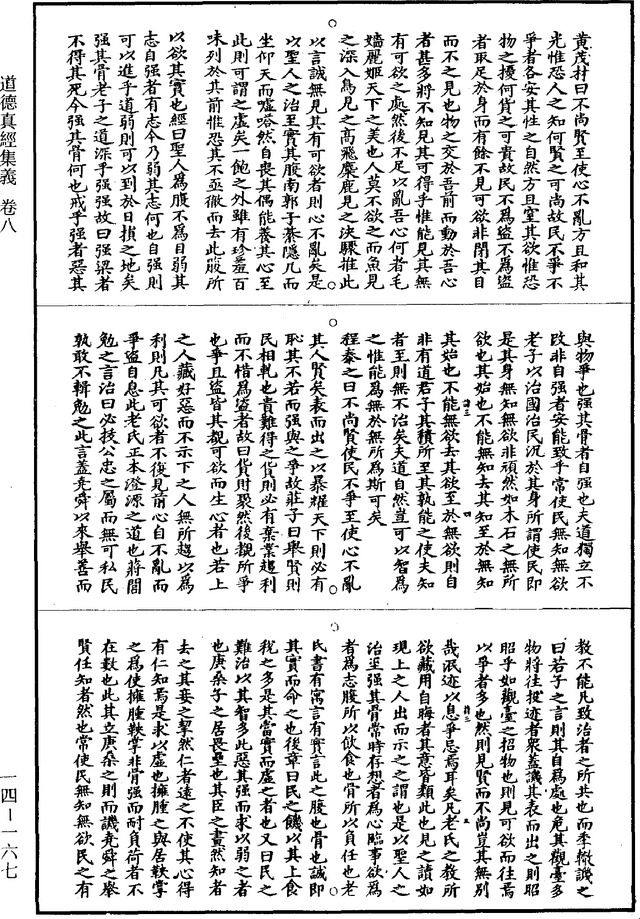 黄茂材曰不尚賢至使心不亂方且和其
光惟恐人之知何賢之可尚故民不爭不
爭者各安其性之自然方且窒其欲惟恐
物之擾何貨之可貴故民不為盜不為盜
者取足於身而有餘不見可欲非閉其目
而不之見也物之交於吾前而動於吾心
者甚多將不知見其可得乎惟能見其無
有可欲之處然後不足以亂吾心何者毛
嬙麗姬天下之美也人莫不欲之而魚見
之深入鳥見之高飛麋鹿見之決驟推此
以言誠無見其有可欲者則心不亂矣是
以聖人之治至實其腹南郭子綦隱几而
坐仰天而噓嗒然自喪其偶能養其心至
此則可謂之虛矣一飽之外雖有珍羞百
味列於其前惟恐其不亟徹而去此腹所
以欲其實也經曰聖人為腹不為目弱其
志自強者有志今乃弱其志何也自強則
可以進乎道弱則可以到於日損之地矣
強其骨老子之道深乎強強故曰強梁者
不得其死今強其骨何也戒乎強者惡其
與物爭也強其骨者自強也夫道獨立不
改非自強者安能致乎常使民無知無欲
老子以治國治民況於其身所謂使民即
是其身無知無欲非頑然如木石之無所
欲也其始也不能無知去其知至於無知
其始也不能無欲去其欲至於無欲則自
非有道君子其積所至其孰能之使夫知
者至則無不治矣夫道自然豈可以智為
之惟能為無於無所為斯可矣
程泰之曰不尚賢使民不爭至使心不亂
其人賢矣表而出之以暴耀天下則必有
恥其不若而強與之爭故莊子曰舉賢則
民相軋也貴難得之貨則必有棄業趨利
而不惜為盜者故曰貨財聚然後覩所爭
也爭且盜皆其覩可欲而生心者也若上
之人藏好惡而不示下之人無所趨以為
利則凡其可欲者不復見前心自不亂而
爭盜自息此老氏正本澄源之道也蔣閭
勉之言治曰必拔公忠之屬而無可私民
孰敢不輯勉之此言蓋堯舜以來舉善而
教不能凡致治者之所共也而季轍譏之
曰若子之言則其自為處也危其觀臺多
物將往投迹者衆蓋譏其表而出之則昭
昭乎如觀臺之招物也則見可欲而往焉
以爭者多也然則見賢而不尚豈其無別
哉泯迹以息爭忌焉耳矣凡老氏之教所
欲藏用自晦者其意皆類此也見之讀如
現上之人出而示之之謂也是以聖人之
治至強其骨常時存想者為心臨事欲為
者為志腹所以飲食也骨所以負任也老
氏書有寓言有實言此之腹也骨也誠即
其實而命之也後章曰民之饑以其上食
稅之多是其當實而虛之者也又曰民之
難治以其智多此惡其強而求以弱之者
也庚桑子之居畏壘也其臣之畫然知者
去之其妾之挈然仁者遠之不使其心得
有仁知焉是求以虛也擁腫之與居鞅掌
之為使擁腫鞅掌非骨強而耐負荷者不
在數也此其立庚桑之則而譏堯舜之舉
賢任知者然也常使民無知無欲民之有
道德真經集義 卷八
一四—一六七